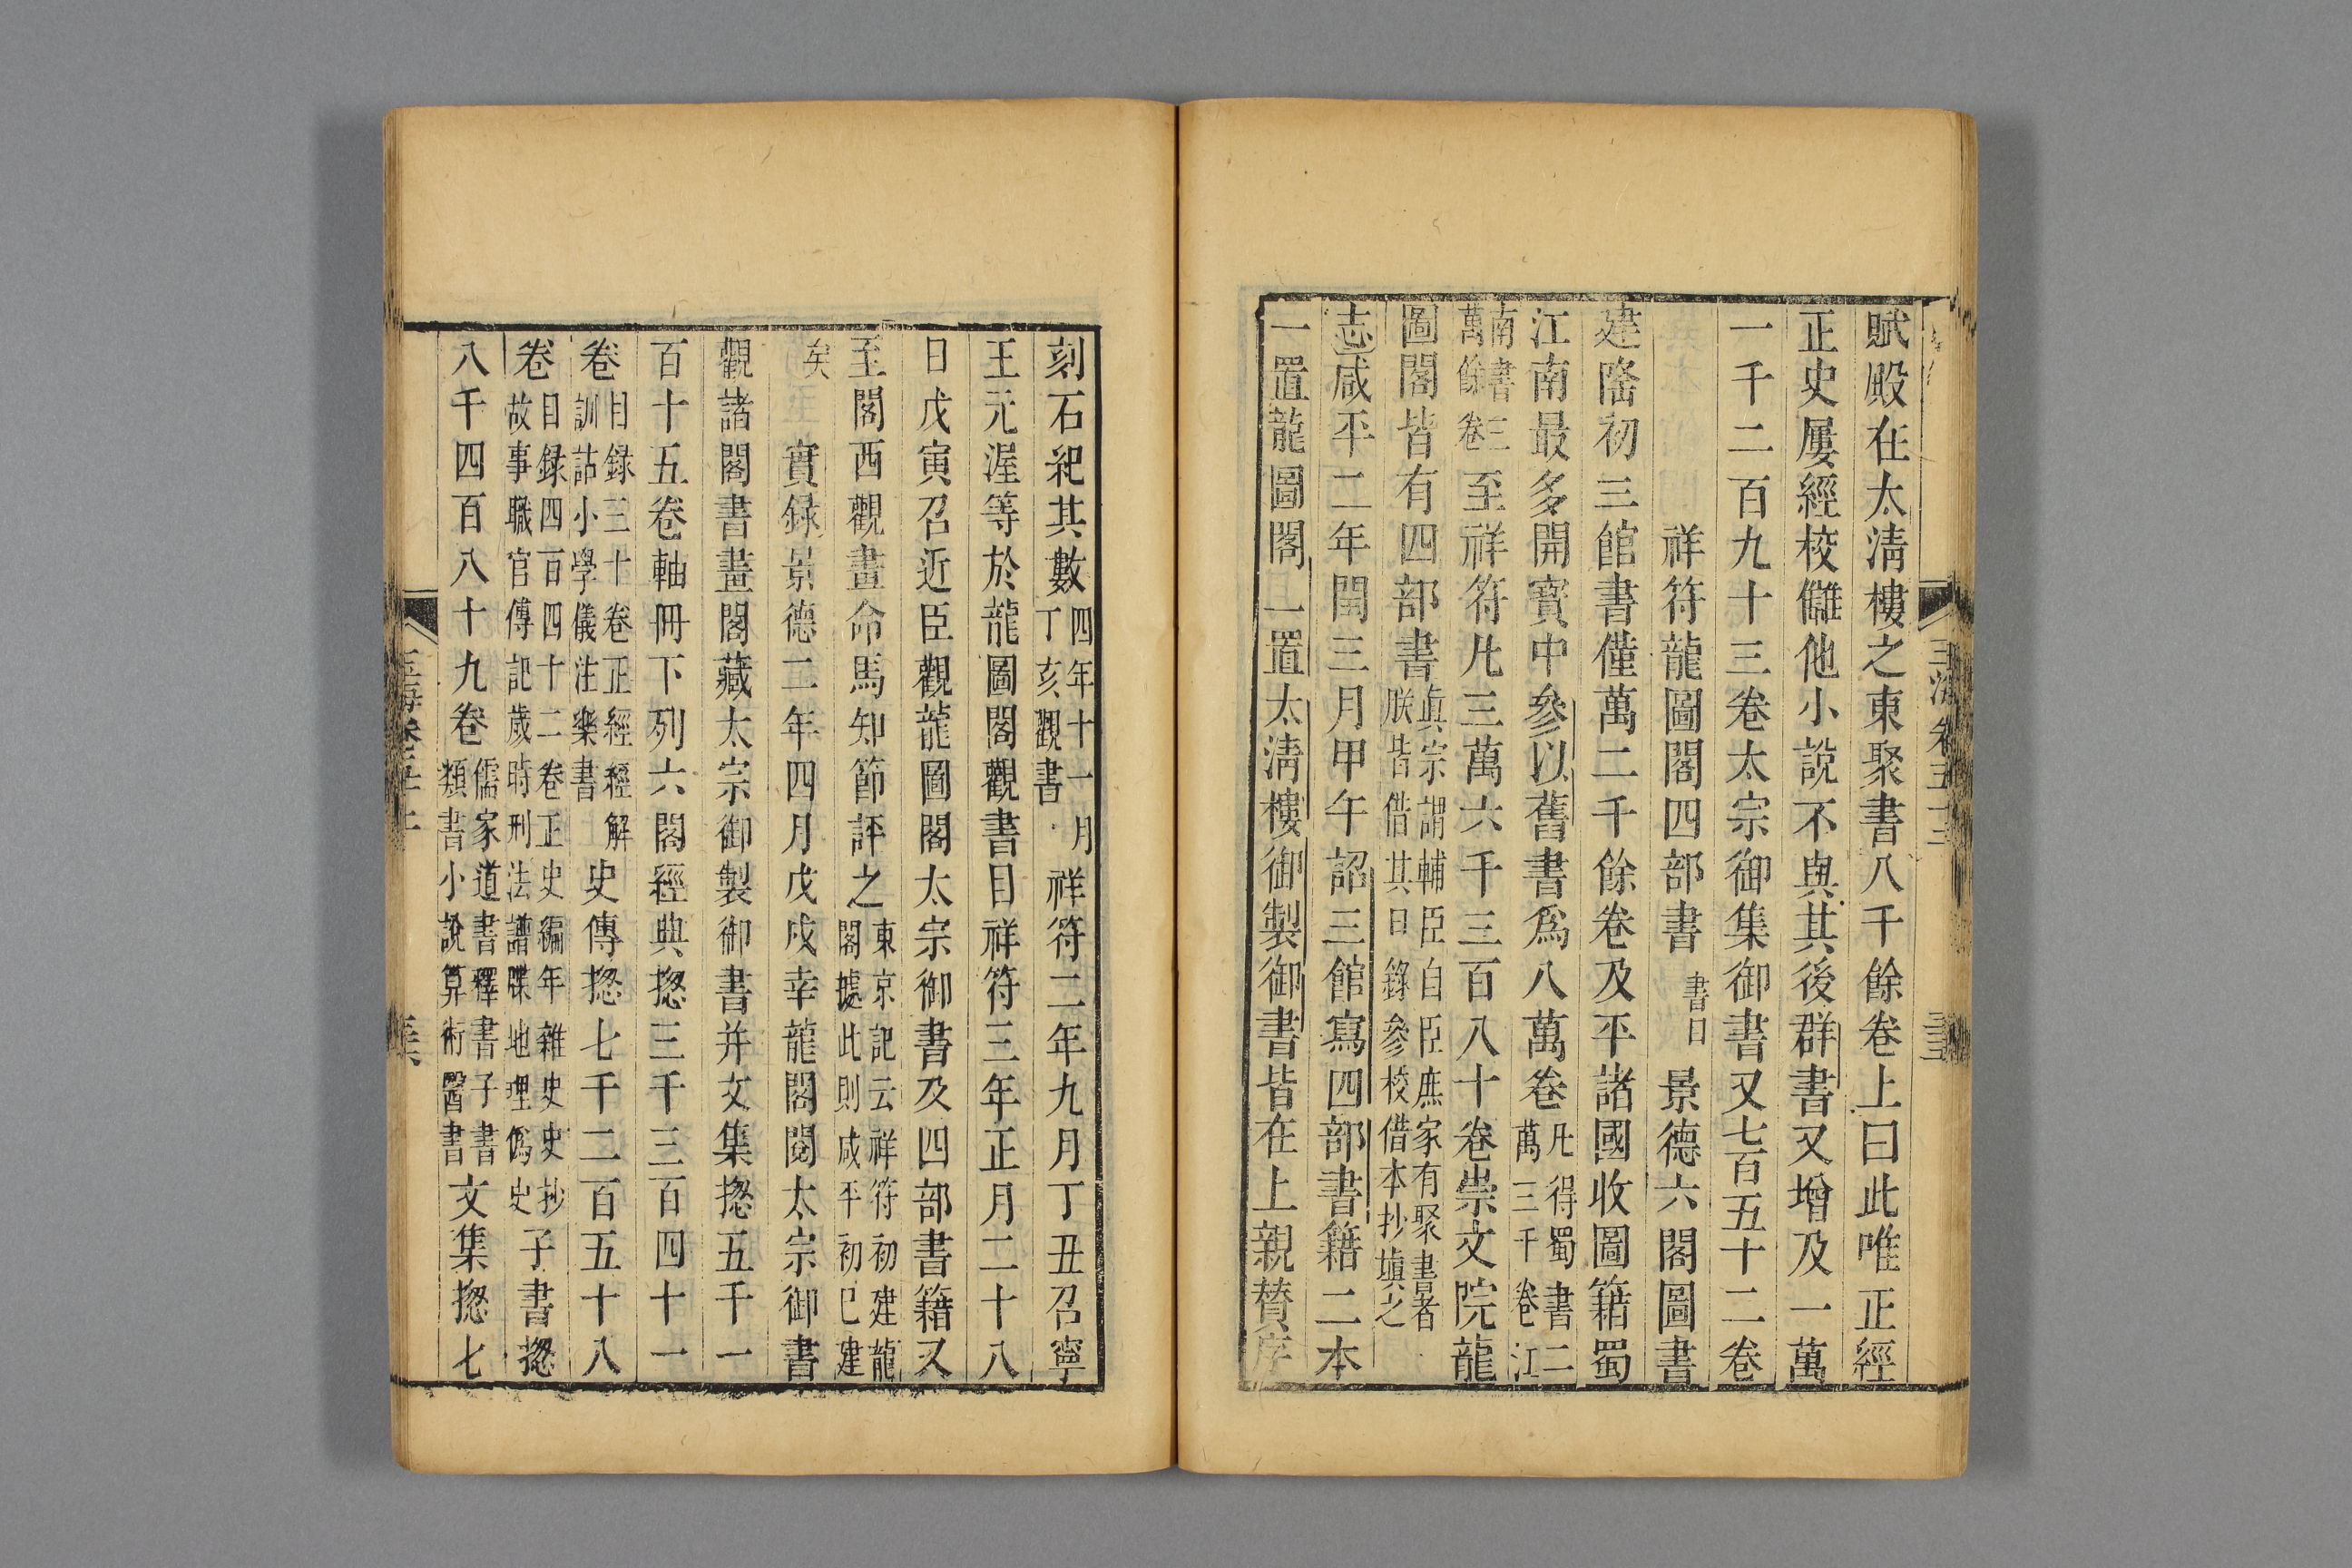 賦殿在太淸樓之東聚書八千餘卷上曰此唯正經
正史屢經校讎他小說不與其後群書又增及一萬
一千二百九十三卷太宗御集御書又七百五十二卷
祥符龍圖閣四部書 書目 景德六閣圖書
建隆初三館書僅萬二千餘卷及平諸國收圖籍蜀
江南最多開寶中參以舊書爲八萬卷 凡得蜀書二萬三千卷江
南書三萬餘卷 至祥符凡三萬六千三百八十卷崇文院龍
圖閣皆有四部書 眞宗謂輔臣曰臣庶家有聚書者朕皆借其目錄參校借本抄塡之
志咸平二年閏三月甲午詔三館寫四部書籍二本
一置龍圖閣一置太淸樓御製御書皆在上親贊序
刻石紀其數 四年十一月丁亥觀書 祥符二年九月丁丑召寧
王元渥等於龍圖閣觀書目祥符三年正月二十八
日戊寅召近臣觀龍圖閣太宗御書及四部書籍又
至閣西觀畫命馬知節評之 東京記云祥符初建龍閣據此則咸平初已建
矣 實錄景德二年四月戊戌幸龍閣閱太宗御書
觀諸閣書畫閣藏太宗御製御書并文集揔五千一
百十五卷軸冊下列六閣經典揔三千三百四十一
卷 目錄三十卷正經經解訓詁小學儀注樂書 史傳揔七千二百五十八
卷 目録四百四十二卷正史編年雜史史抄故事職官傳記歲時刑法譜牒地理僞史 子書揔
八千四百八十九卷 儒家道書釋書子書類書小說算術醫書 文集揔七